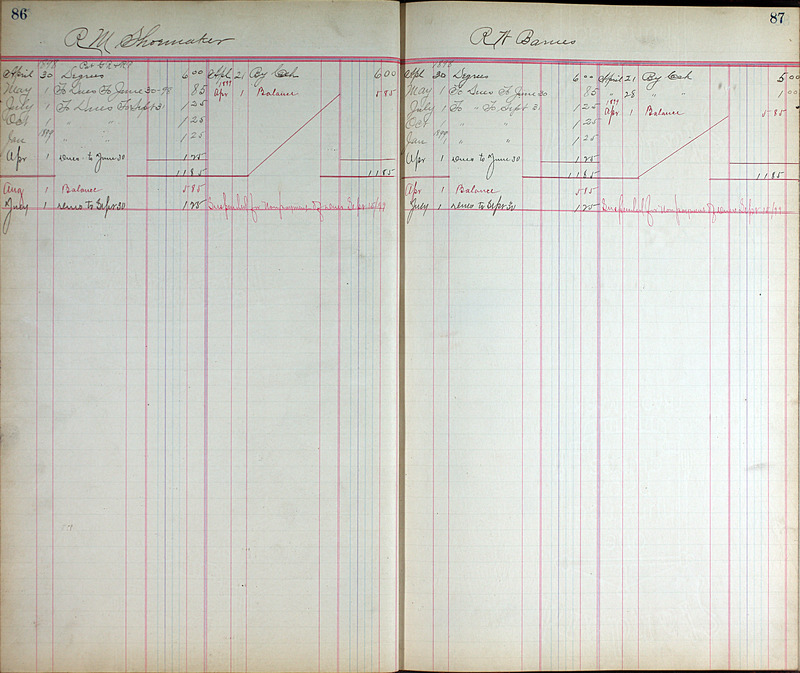 86
R M Shoemaker
1898
April 30 Degrees 6 00 Apl 21 By Csh 6 00
May 1 To Dues To June 30-98 85 1899 Apr 1 Balance 5 85
July 1 To Dues To Sept 31 1 25
Oct 1 " " 1 25
Jan 1899 1 " " 1 25
Apr 1 dues to June 30 1 25
11 85 11 85
Aug 1 Balance 5 85
July 1 dues to Sept 30 1 25 Suspended for Nonpayment of dues Sept
87
R A Barnes
1898
Apl 30 Degrees 6 00 April 21 By Csh 5 00
May 1 To Dues To June 30 85 " 28 " " 1 00
July 1 To " To Sept 31 1 25 1899 Apr 1 Balance 5 85
Oct 1 " " 1 25
Jan 1899 1 " " 1 25
Apr 1 dues to June 30 1 25
11 85 11 85
Apr 1 Balance 5 85
July 1 dues to Sept 30 1 25 Suspended for Nonpayment of dues Sept